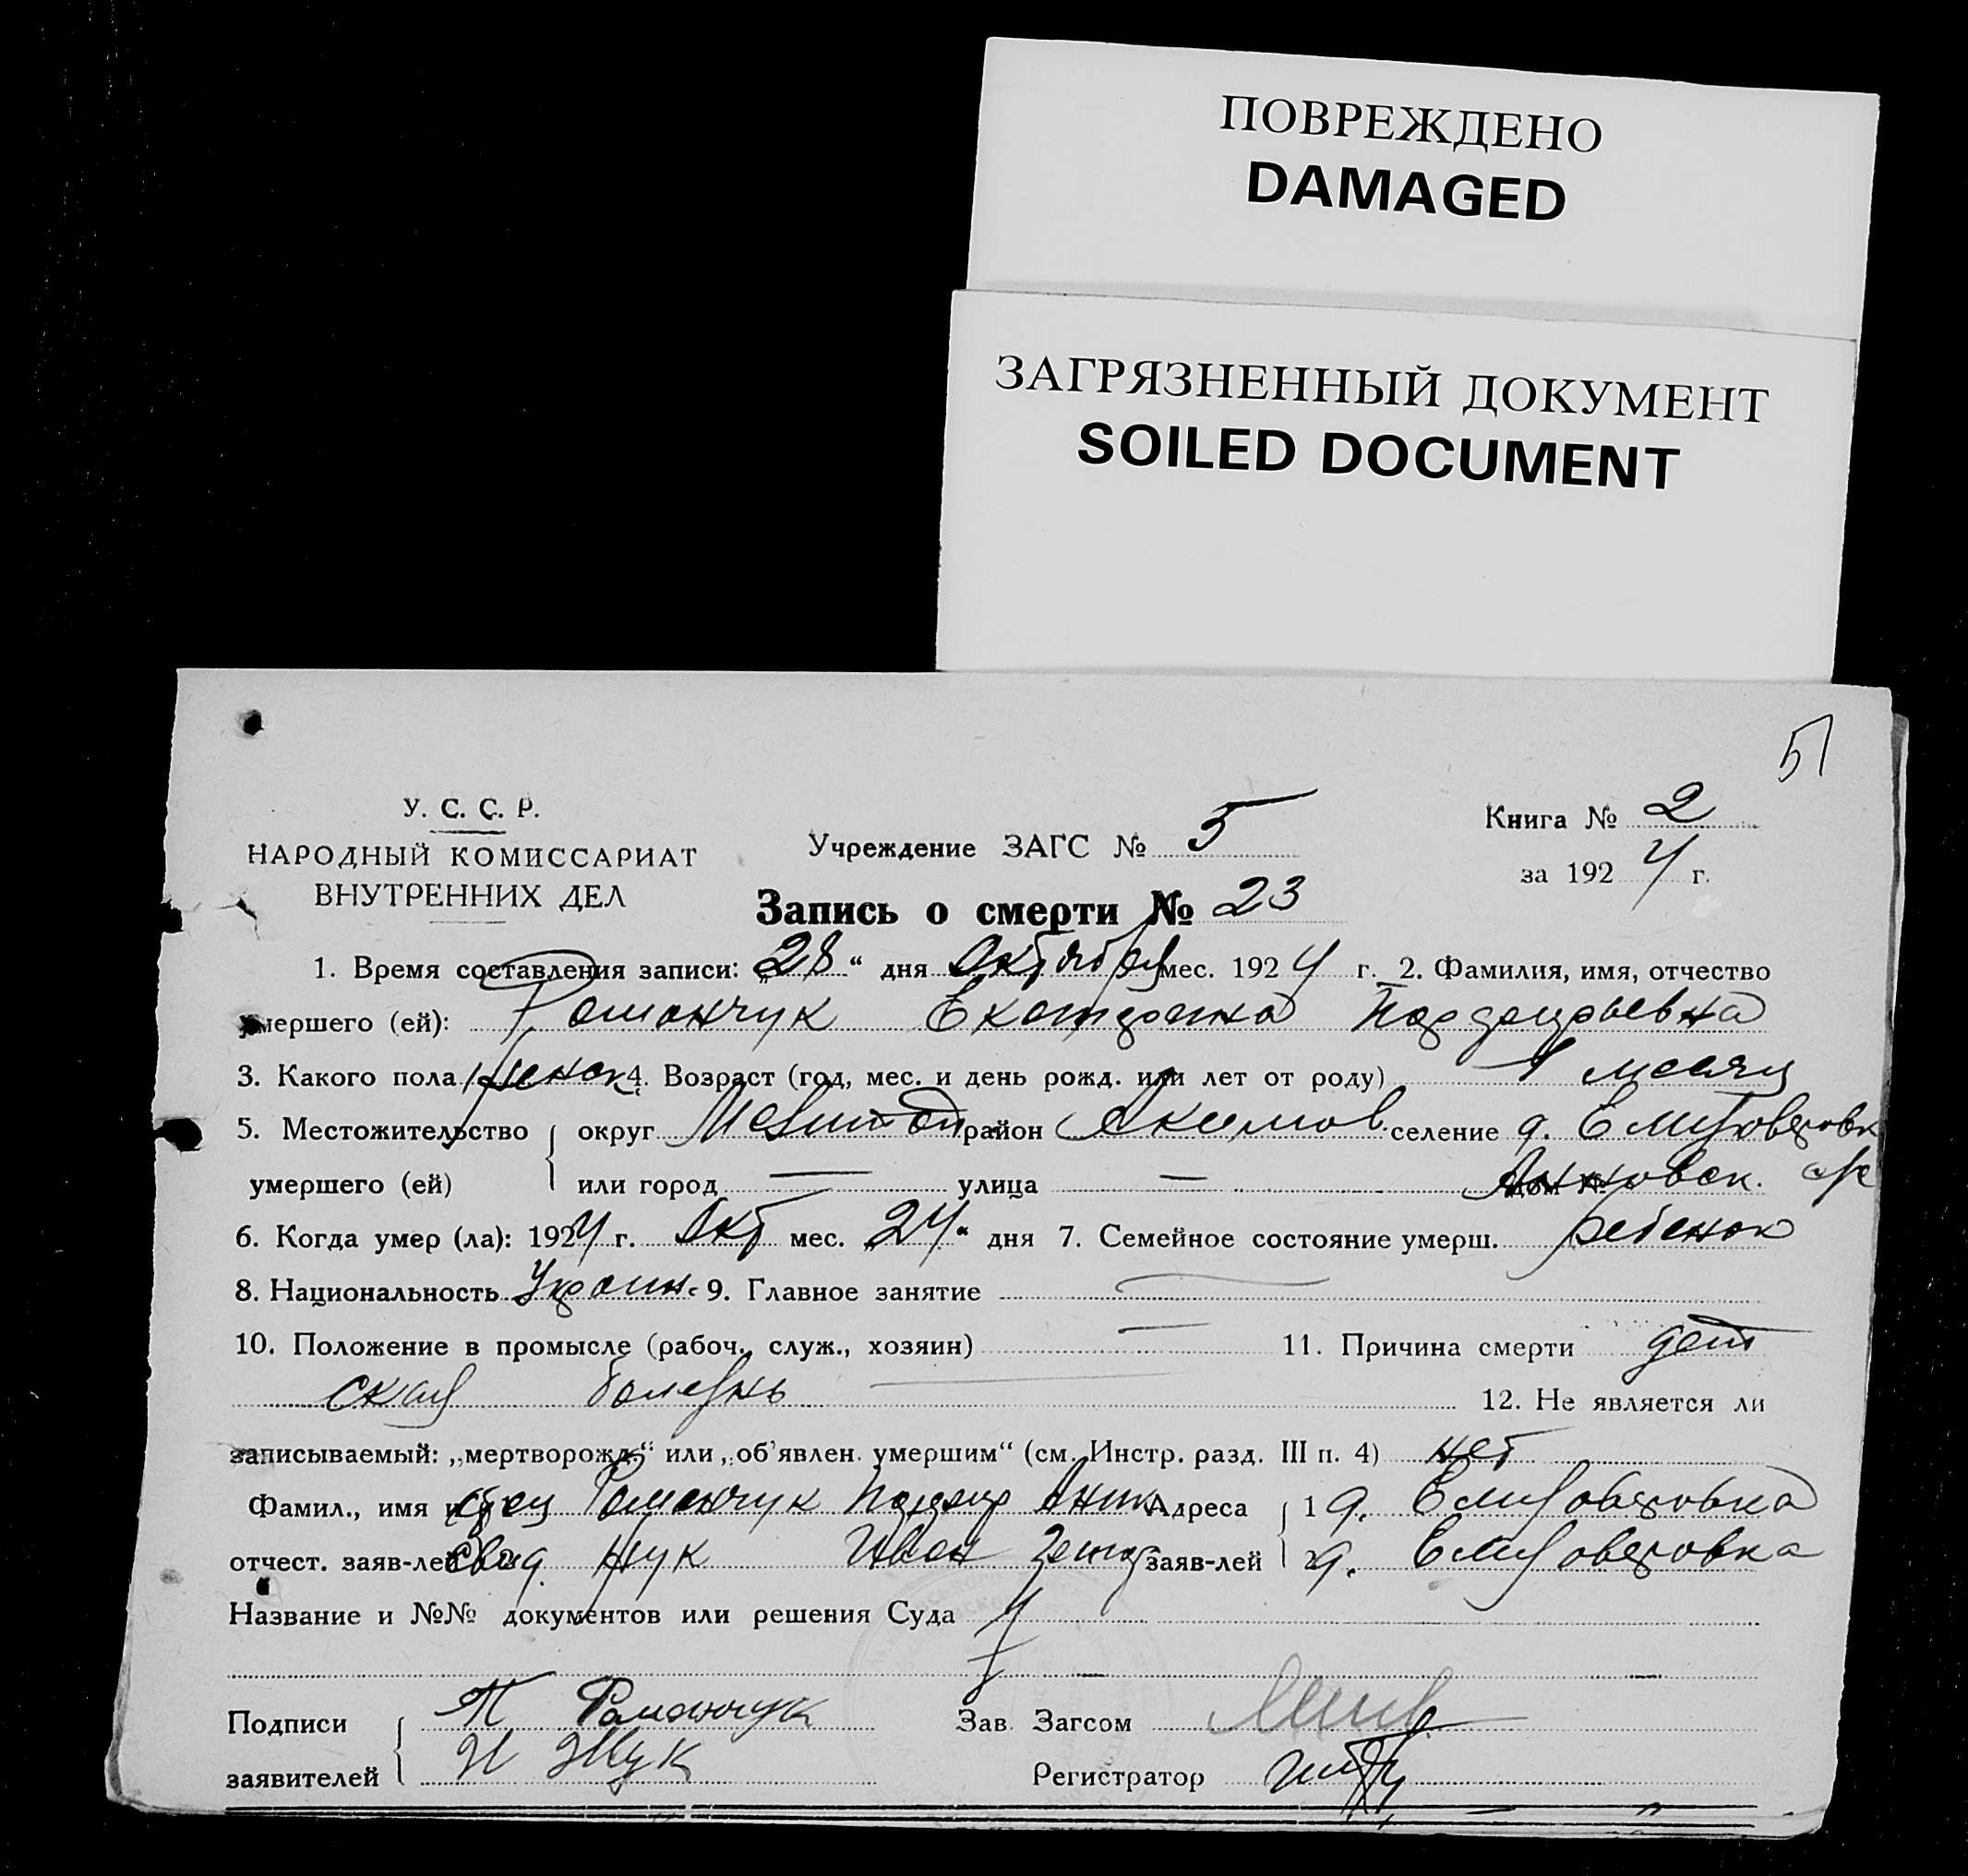 ПОВРЕЖДЕНО
DAMAGED
ЗАГРЯЗНЕННЫЙ ДОКУМЕНТ
SOILED DOCUMENT
51
У. С. С. Р.
НАРОДНЫЙ КОМИССАРИАТ
ВНУТРЕННИХ ДЕЛ
Учреждение ЗАГС № 5
Книга № 2
за 1924 г.
Запись о смерти № 23
1. Время составления записи: „28“ дня Октября мес. 1924 г. 2. Фамилия, имя, отчество
умершего (ей): Романчук Екатерина
3. Какого пола женск 4. Возраст (год, мес. и день рожд. или лет от роду) 1 месяц
5. Местожительство округ Мелитоп район Акимов селение д.
умершего (ей) или город — улица — дом № Анновск. с/с
6. Когда умер (ла): 1924 г. Окт мес. „24“ дня 7. Семейное состояние умерш. ребенок
8. Национальность Украин. 9. Главное занятие —
10. Положение в промысле (рабоч., служ., хозяин) — 11. Причина смерти дет
ская болезнь —
12. Не является ли
записываемый: „мертворожд.“ или „об'явлен. умершим“ (см. Инстр. разд. III п. 4) нет
Фамил., имя и отец Романчук Адреса 1 д. Елизоветовка
отчест. заяв-лей Свид. Жук Иван заяв-лей 2 д. Елизоветовка
Название и №№ документов или решения Суда
Подписи П Романчук Зав. Загсом
заявителей И Жук Регистратор